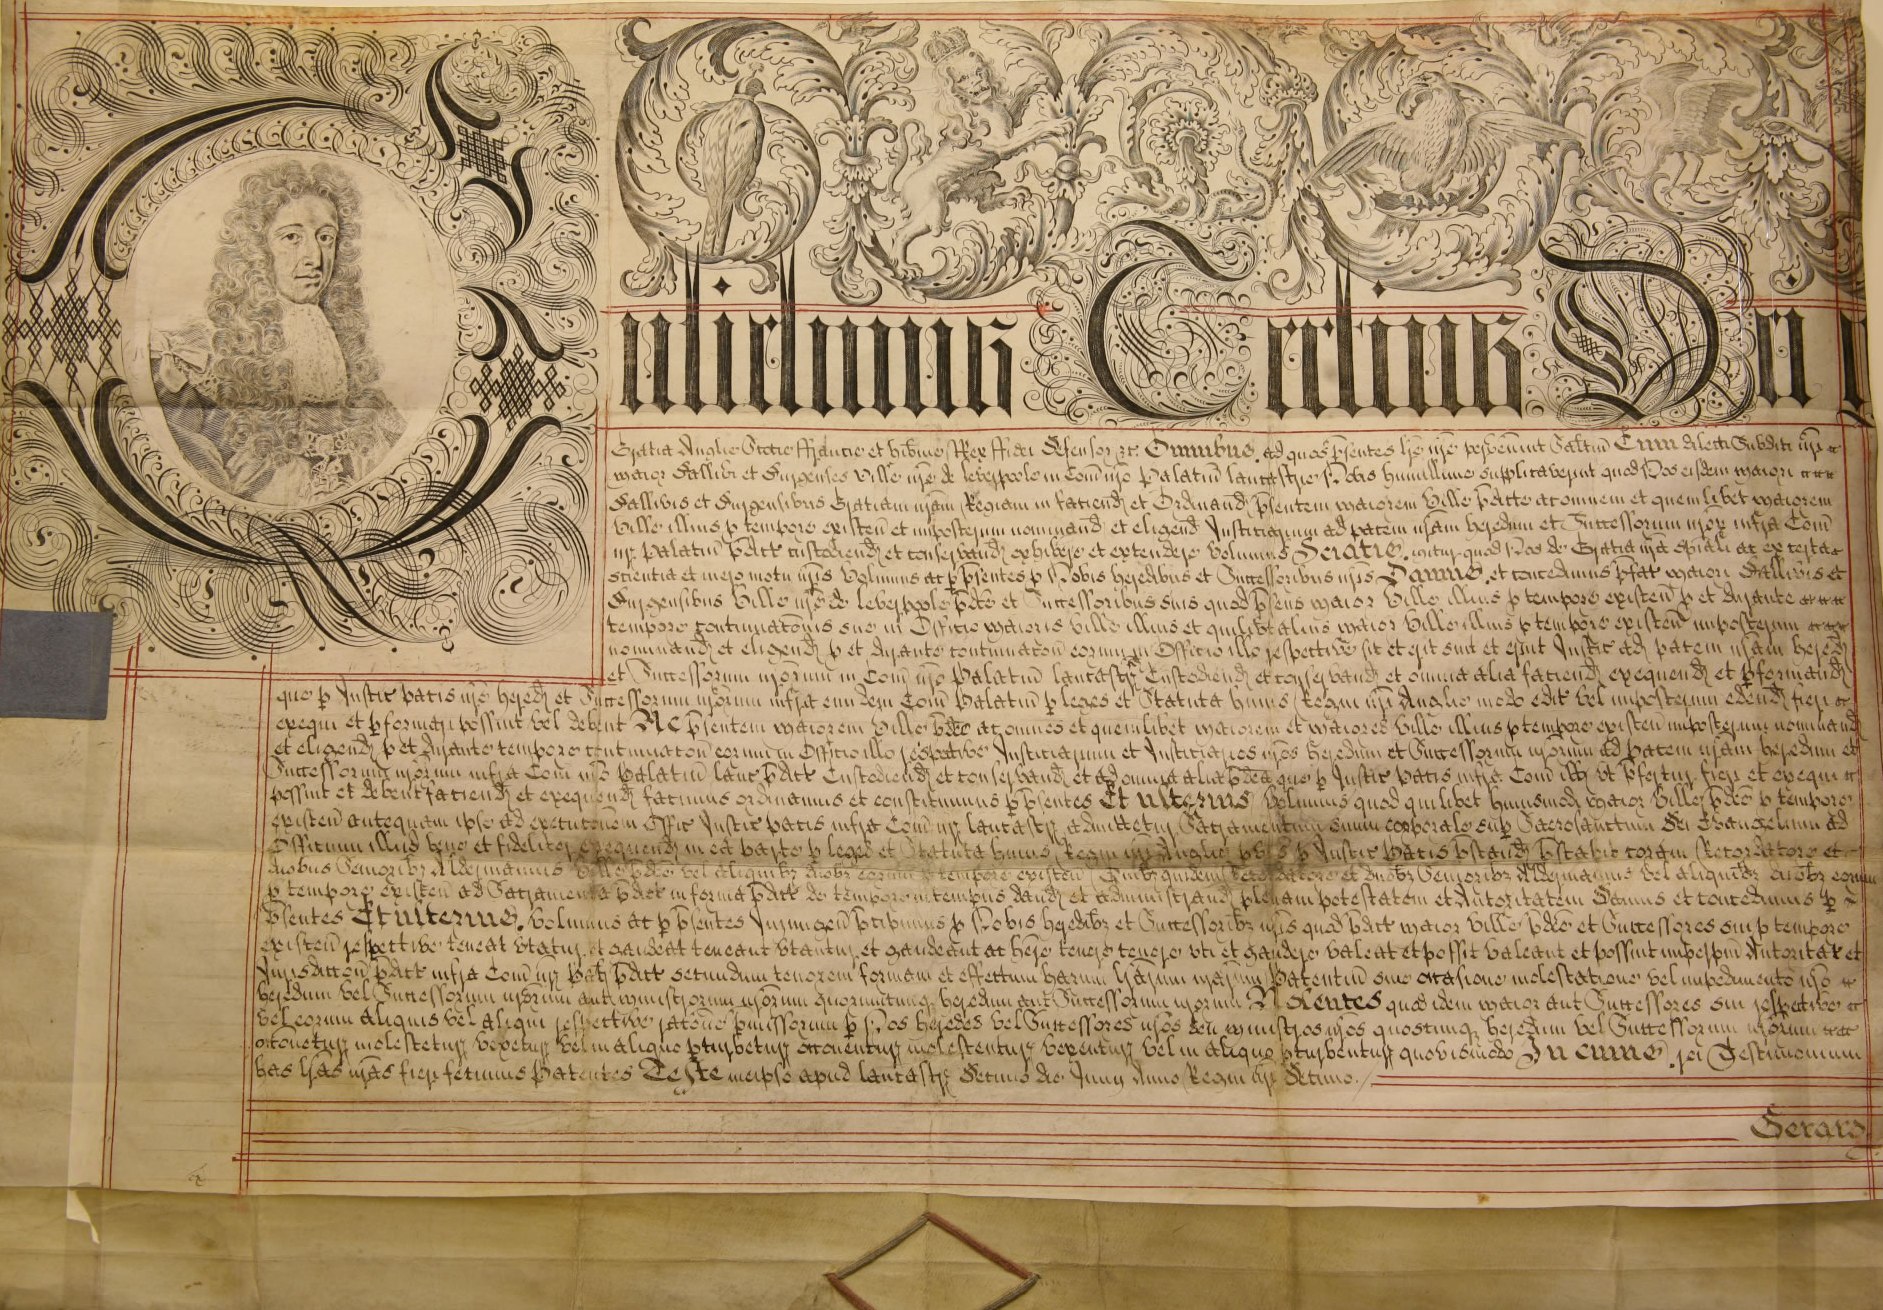 Gulielmus Tertius Dei
Gratia Anglie Scotie ffrancie et hibnie Rex ffidei Defensor &c Omnibus ad quos psentes lre nre pervenerint Saltm Cum dilecti Subditi nri
maior Ballivi et Burgenses Ville nre de Leverpoole in Com nro Palatin Lancastrie Nobis humillime supplicaverint quod Nos eisdem maiori
Ballivis et Burgensibus Gratiam nram Regiam in faciend et Ordinand psentem maiorem Ville pdicte ac omnem et quemlibet maiorem
Ville illius p tempore existen et imposterum nominand et eligend Justiciarium ad pacem nram heredum et Successorum nror infra Com
nr Palatin pdict custodiend et conservand exhibere et extendere velimus Sciatis igitur quod Nos de Gratia nra spiali ac ex certa
scientia et mero motu nris Volumus ac p psentes p Nobis heredibus et Successoribus nris Damus et concedimus pfat maiori Ballivis et
Burgensibus Ville nre de Leverpoole pdce et Successoribus suis quod psens maior Ville illius p tempore existen p et durante
tempore continuaconis sue in Officio maioris Ville illius et quilibt alius maior Ville illius p tempore existen imposterum
nominand et eligend p et durante continuacon eorum in Officio illo respective sit et erit sint et erunt Justic ad pacem nram hered
et Successorum nrorum in Com nro Palatin Lancastr Custodiend et conservand et omnia alia faciend exequend et pformand
que p Justic pacis nre hered et Successorum nrorum infra eundem Com Palatin p leges et Statuta huius Regni nri Anglie modo edit vel imposterum edend fieri
exequi et pformari possint vel debent Ac psentem maiorem Ville pdce ac omnes et quemlibet maiorem et maiores Ville illius p tempore existen imposterum nominand
et eligend p et durante tempore continuacon eorum in Officio illo respective Justiciarium et Justiciarios nros heredum et Successorum nrorum ad pacem nram heredum et
Successorum nrorum infra Com nro Palatin Lanc pdict Custodiend et conservand et ad omnia alia pdca que p Justic pacis infra Com ill ut pfertur fieri et exequi
possint et debent faciend et exequend facimus ordinamus et constituimus p psentes Et ulterius Volumus quod quilibet huiusmodi maior Ville pdce p tempore
existen antequam ipse ad execucionem Offic Justic pacis infra Com nr Lancastr admittetur Sacramentum suum corporale sup Sacrosanctum Dei Evangelium ad
Officium illud bene et fideliter exequend in ea parte p leges et Statuta huius Regni nri Anglie p Justic pacis pstand pstabit coram Recordatore et
duobus Senioribz Aldermannis Ville pdce vel aliquibz duobz eorum p tempore existen Quibz quidem Recordatore et duobz Senioribz Aldermannis vel aliquibz duobz eorum
p tempore existen ad Sacramenta pdict in forma pdict de tempore in tempus dand et administrand plenam potestatem et Autoritatem Damus et concedimus p
psentes Et ulterius volumus ac p psentes p Nobis heredibz et Successoribz nris quod pdict maior Ville pdce et Successores sui p tempore
existen respective teneat utatur et gaudeat teneant utantur et gaudeant ac here tenere uti et gaudere valeat et possit valeant et possint imperpm Autoritat et
Jurisdiccon pdict infra Com nr pal pdict secundum tenorem formam et effectum harum lrarum nrarum Patentium sine occasione molestatione vel impedimento nro
heredum vel Successorum nrorum aut ministrorum nrorum quorumcunqz heredum aut Successorum nrorum Nolentes quod idem maior aut Successores sui respective
vel eorum aliquis vel aliqui respective racone pmissorum p Nos heredes vel Successores nros seu ministros nros quoscunqz heredum vel Successorum nrorum
occonetur molestetur vexetur vel in aliquo pturbetur occonentur molestentur vexentur vel in aliquo pturbentur quovismodo In cuius rei Testimonium
has lras nras fieri fecimus Patentes Teste meipso apud Lancastr Decimo die Junii Anno Regni nri Decimo
Gerard